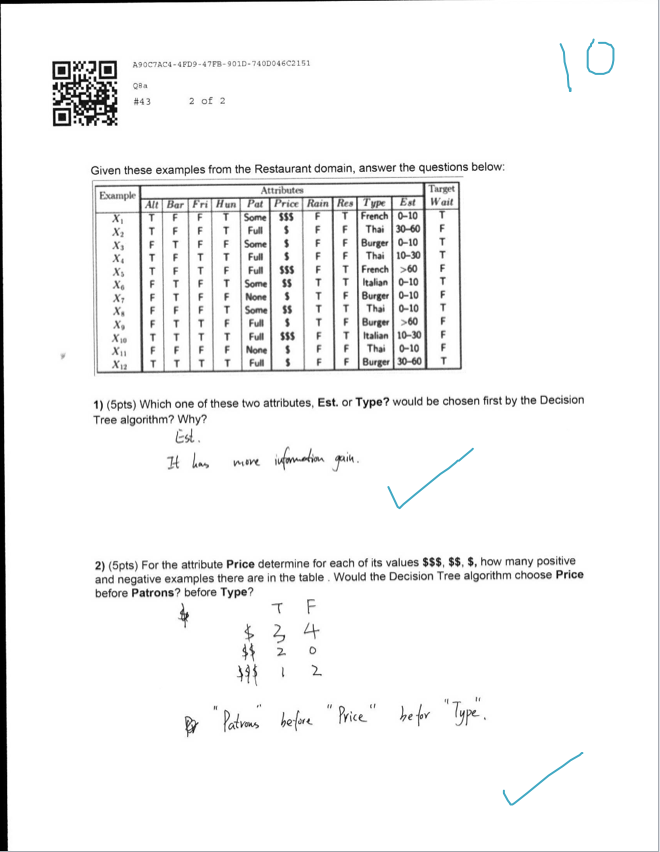 10
A90C7AC4-4FD9-47FB-901D-740D046C2151
Q8a
#43 2 of 2
Given these examples from the Restaurant domain, answer the questions below:
Example Attributes Target
Alt Bar Fri Hun Pat Price Rain Res Type Est Wait
X1 T F F T Some $$$ F T French 0–10 T
X2 T F F T Full $ F F Thai 30–60 F
X3 F T F F Some $ F F Burger 0–10 T
X4 T F T T Full $ F F Thai 10–30 T
X5 T F T F Full $$$ F T French >60 F
X6 F T F T Some $$ T T Italian 0–10 T
X7 F T F F None $ T F Burger 0–10 F
X8 F F F T Some $$ T T Thai 0–10 T
X9 F T T F Full $ T F Burger >60 F
X10 T T T T Full $$$ F T Italian 10–30 F
X11 F F F F None $ F F Thai 0–10 F
X12 T T T T Full $ F F Burger 30–60 T
1) (5pts) Which one of these two attributes, Est. or Type? would be chosen first by the Decision
Tree algorithm? Why?
Est.
It has more information gain.
2) (5pts) For the attribute Price determine for each of its values $$$, $$, $, how many positive
and negative examples there are in the table . Would the Decision Tree algorithm choose Price
before Patrons? before Type?
T F
$ 3 4
$$ 2 0
$$$ 1 2
"Patrons" before "Price" befor "Type".